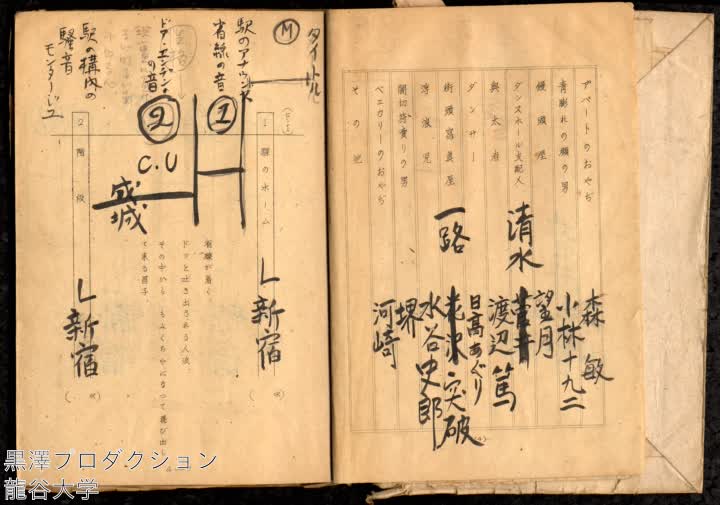 アパートのおやぢ
青膨れの顔の男
饅頭屋
ダンスホール支配人
與太者
ダンサー
街頭寫眞屋
浮浪児
闇切符賣りの男
ベエカリーのおやぢ
その他
森 敏
小林十九二
望月
清水
渡辺篤
日高あぐり
一路
突破
水谷史郎
堺
河崎
タイトル
M
駅のアナウンス
省線の音
ドア・エンヂンの音
駅の構内の騒音
モンタージュ
1
2
C.U
成城
1 驛のホーム
L 新宿
省線が着く
ドッと吐き出される人波
その中から もみくちやになつて飛び出し
て来る昌子
2 階段
L 新宿
黒澤プロダクション
龍谷大学